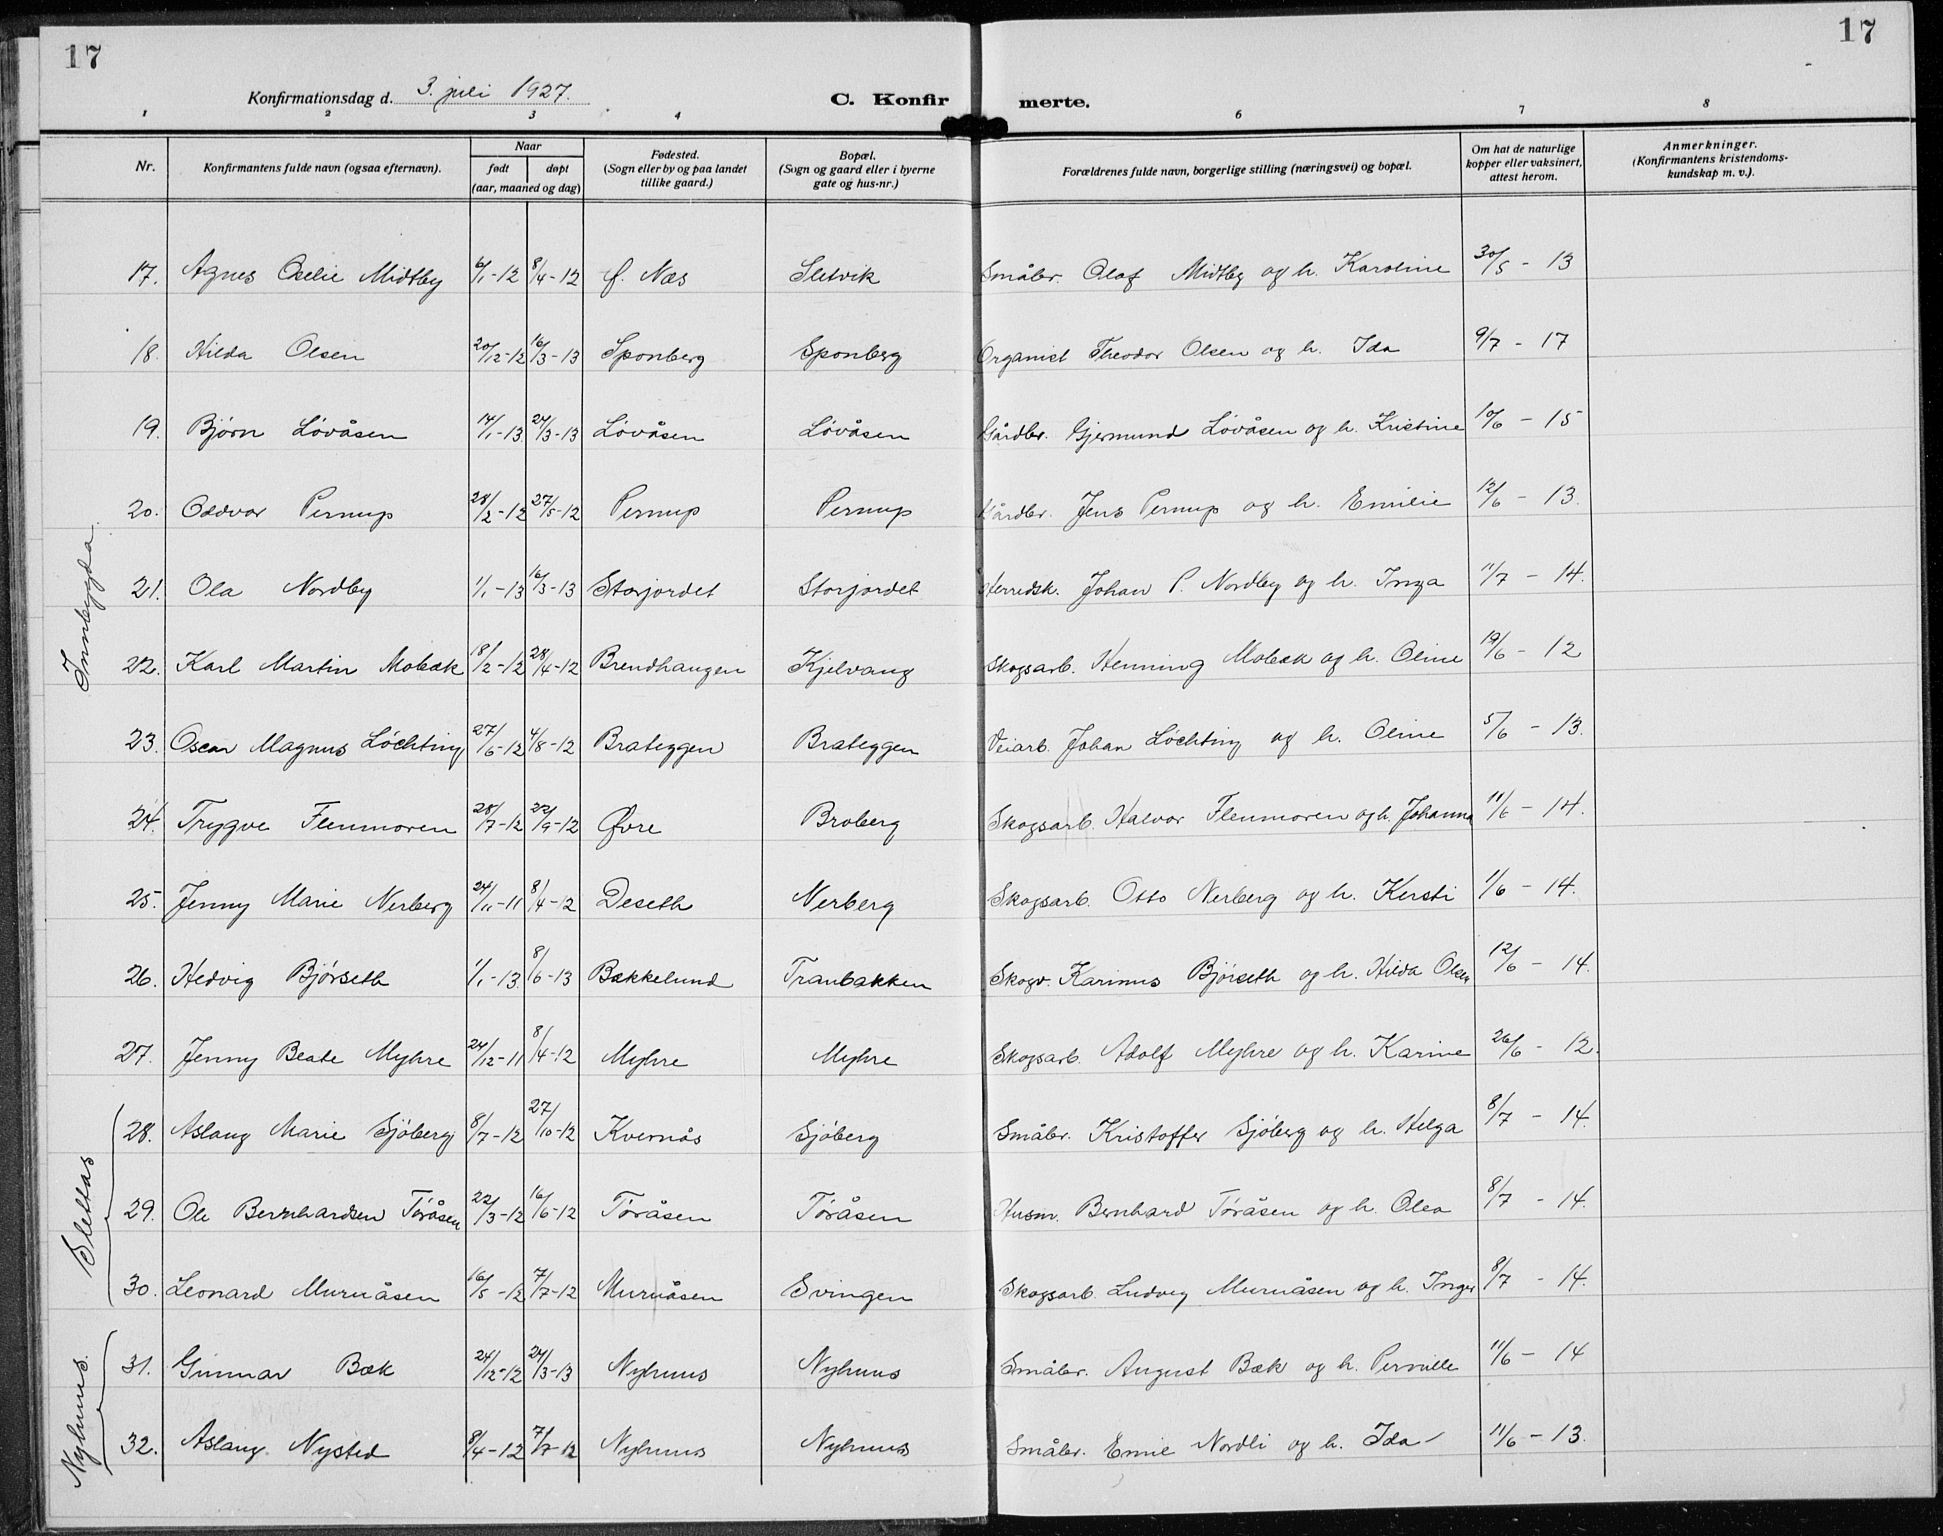 17
17
Konfirmationsdag d. 3. juli 1927.
C. Konfirmerte.
1 2 3 4 6 7 8
Nr.
Konfirmantens fulde navn (ogsaa efternavn).
Naar
født døpt
(aar, maaned og dag)
Fødested.
(Sogn eller by og paa landet
tillike gaard.)
Bopæl.
(Sogn og gaard eller i byerne
gate og hus-nr.)
Forældrenes fulde navn, borgerlige stilling (næringsvei) og bopæl.
Om hat de naturlige
kopper eller vaksinert,
attest herom.
Anmerkninger.
(Konfirmantens kristendoms-
kundskap m. v.).
17. Agnes Oselie Midtby 6/1-12 8/4-12 f. Næs Sletvik Småbr. Olaf Midtby og h. Karoline 30/5 - 13
18. Hilda Olsen 20/12-12 16/3-13 Sponberg Sponberg Organist Theodor Olsen og h. Ida 9/7 - 17
19. Bjørn Løvåsen 14/1-13 24/3-13 Løvåsen Løvåsen Gårdbr. Gjermund Løvåsen og h. Kristine 10/6 - 15
Innbygda
20. Oddvar Pernup 28/2-12 27/5-12 Pernup Pernup Gårdbr. Jens Pernup og h. Emilie 12/6 - 13.
21. Ola Nordby 1/1-13 16/3-13 Storjordet Storjordet Herredsk. Johan P. Nordby og h. Inga 11/7 - 14.
22. Karl Martin Mobæk 18/2-12 28/4-12 Brendhaugen Kjelvang Skogsarb. Henning Mobæk og h. Oline 19/6 - 12
23. Oscar Magnus Løchting 27/6-12 4/8-12 Brateggen Brateggen Veiarb. Johan Løchting og h. Oline 5/6 - 13.
24. Trygve Flenmoren 28/7-12 22/9-12 Øvre Broberg Skogsarb. Halvor Flenmoren og h. Johanna 11/6 - 14.
25. Jenny Marie Nerberg 24/11-11 8/4-12 Deseth Nerberg Skogsarb. Otto Nerberg og h. Kersti 1/6 - 14.
26. Hedvig Bjørseth 1/1-13 8/6-13 Bækkelund Tranbakken Skogv. Karinus Bjørseth og h. Hilda Olsen 12/6 - 14.
27. Jenny Beate Myhre 24/12-11 8/4-12 Myhre Myhre Skogsarb. Adolf Myhre og h. Karine 26/6 - 12.
Slettås
28. Aslaug Marie Sjøberg 8/7-12 27/10-12 Kvernås Sjøberg Småbr. Kristoffer Sjøberg og h. Helga 8/7 - 14.
29. Ole Bernhardsen Tøråsen 22/3-12 16/6-12 Tøråsen Tøråsen Husm. Bernhard Tøråsen og h. Olea 8/7 - 14.
30. Leonard Muruåsen 16/5-12 7/7-12 Muruåsen Svingen Skogsarb. Ludvig Muruåsen og h. Inger 8/7 - 14.
Nyhuus.
31. Gunnar Bæk 24/12-12 24/3-13 Nyhuus Nyhuus Småbr. August Bæk og h. Pernille 11/6 - 14
32. Aslaug Nysted 8/4-12 7/7-12 Nyhuus Nyhuus Småbr. Emil Nordli og h. Ida 11/6 - 13.